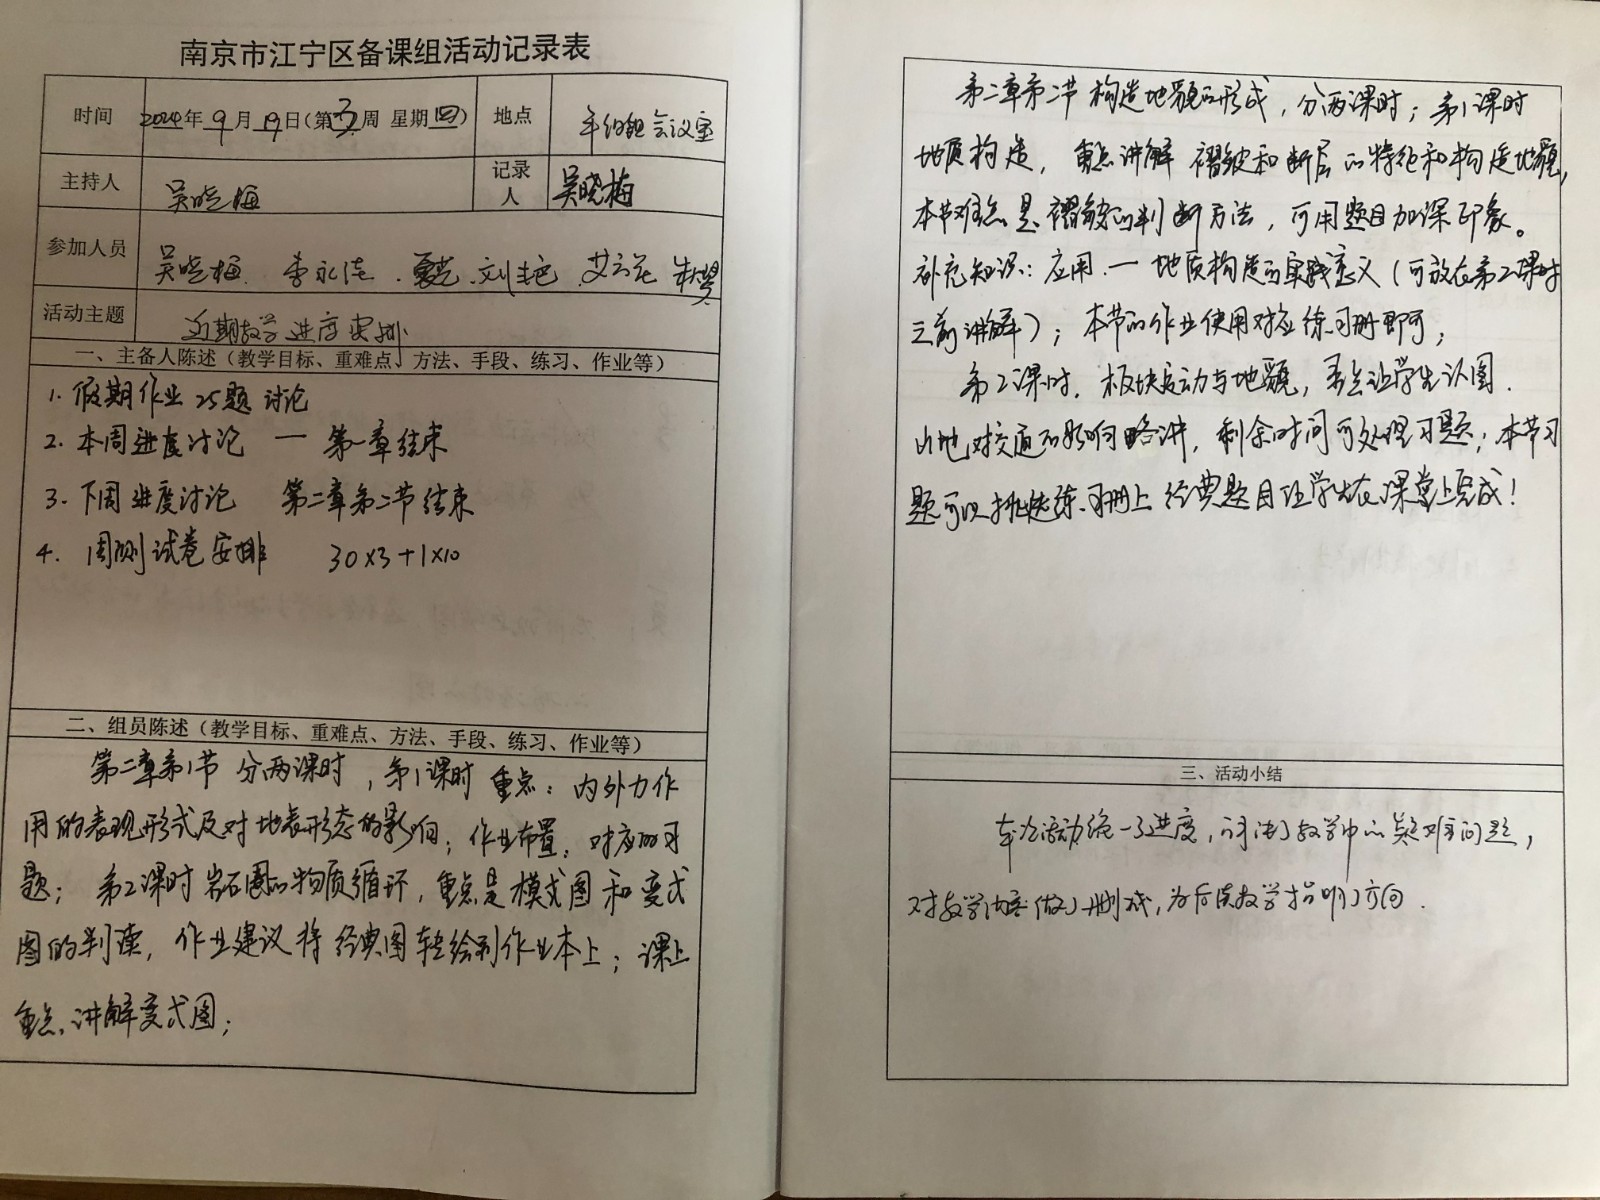 南京市江宁区备课组活动记录表
时间 2024年9月19日(第3周 星期四) 地点 年级组会议室
主持人 吴晓梅 记录人 吴晓梅
参加人员 吴晓梅
活动主题 近期教学进度安排
一、主备人陈述（教学目标、重难点、方法、手段、练习、作业等）
1. 假期作业25题讨论
2. 本周进度讨论 — 第一章结束
3. 下周进度讨论 第二章第二节结束
4. 周测试卷安排 30×3+1×10
二、组员陈述（教学目标、重难点、方法、手段、练习、作业等）
第二章第1节 分两课时，第1课时 重点：内外力作
用的表现形式及对地表形态的影响；作业布置：对应的习
题；第2课时 岩石圈的物质循环，重点是模式图和变式
图的判读，作业建议将经典图转绘到作业本上；课上
重点讲解变式图；
第二章第二节 构造地貌的形成，分两课时；第1课时
地质构造，重点讲解 褶皱和断层的特征和构造地貌，
本节难点是褶皱的判断方法，可用题目加深印象。
补充知识：应用 — 地质构造的实践意义（可放在第2课时
之前讲解）；本节的作业使用对应练习册即可；
第2课时，板块运动与地貌，重点让学生认图．
山地对交通的影响略讲，剩余时间可处理习题；本节习
题可以挑选练习册上经典题目让学生在课堂上完成！
三、活动小结
本次活动统一了进度，讨论了教学中的疑难问题，
对教学内容做了删减，为后续教学指明了方向．